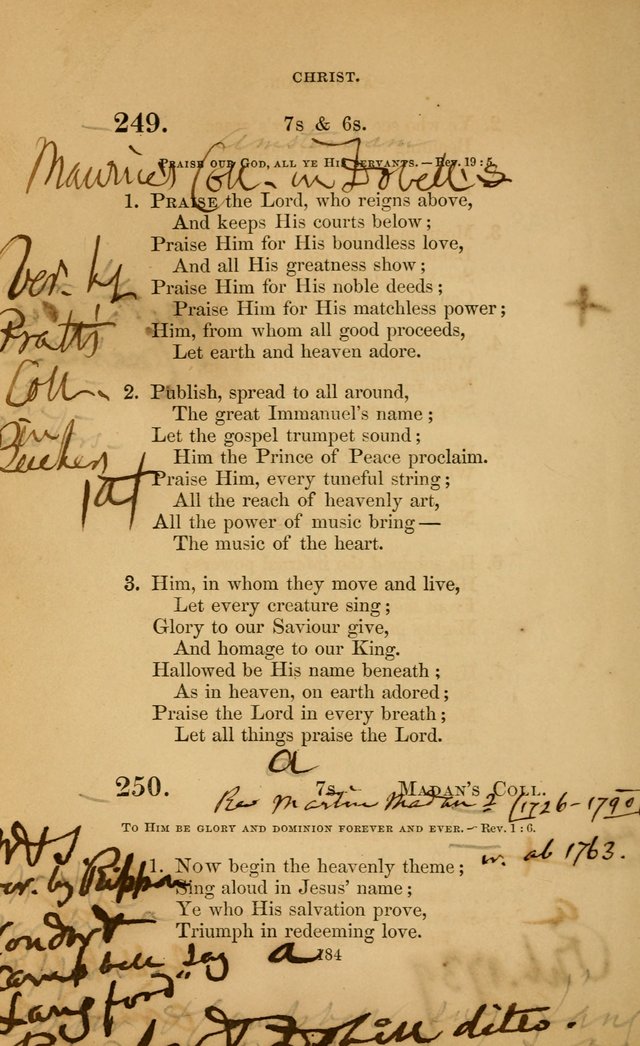 CHRIST.
249. 7s & 6s.
PRAISE OUR GOD, ALL YE HIS SERVANTS. — Rev. 19 : 5.
Maurice's Coll. in Dobell's
1. PRAISE the Lord, who reigns above,
And keeps His courts below ;
Praise Him for His boundless love,
And all His greatness show ;
Praise Him for His noble deeds ;
Praise Him for His matchless power ;
Him, from whom all good proceeds,
Let earth and heaven adore.
Ver. by
Pratt's
Coll.
in
2. Publish, spread to all around,
The great Immanuel's name ;
Let the gospel trumpet sound ;
Him the Prince of Peace proclaim.
Praise Him, every tuneful string ;
All the reach of heavenly art,
All the power of music bring —
The music of the heart.
3. Him, in whom they move and live,
Let every creature sing ;
Glory to our Saviour give,
And homage to our King.
Hallowed be His name beneath ;
As in heaven, on earth adored ;
Praise the Lord in every breath ;
Let all things praise the Lord.
a
250. 7s. MADAN'S COLL.
Rev Martin Madan (1726-1790)
TO HIM BE GLORY AND DOMINION FOREVER AND EVER. — Rev. 1 : 6.
w. ab 1763.
1. Now begin the heavenly theme ;
Sing aloud in Jesus' name ;
Ye who His salvation prove,
Triumph in redeeming love.
ver. by Rippon
Campbell say
Langford"
a
184
Dobell ditto.